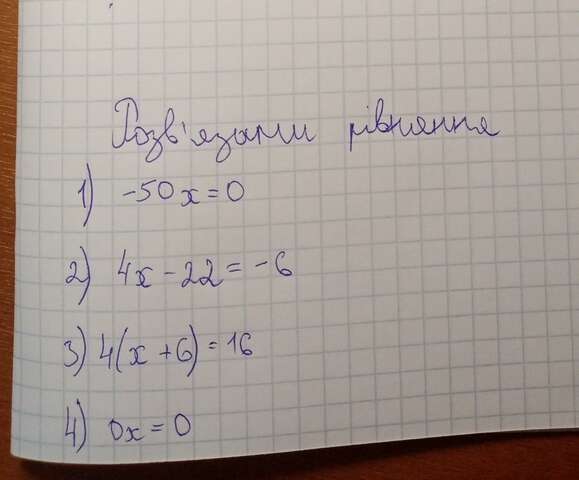 Розв'язати рівняння
1) -50x = 0
2) 4x - 22 = -6
3) 4(x + 6) = 16
4) 0x = 0